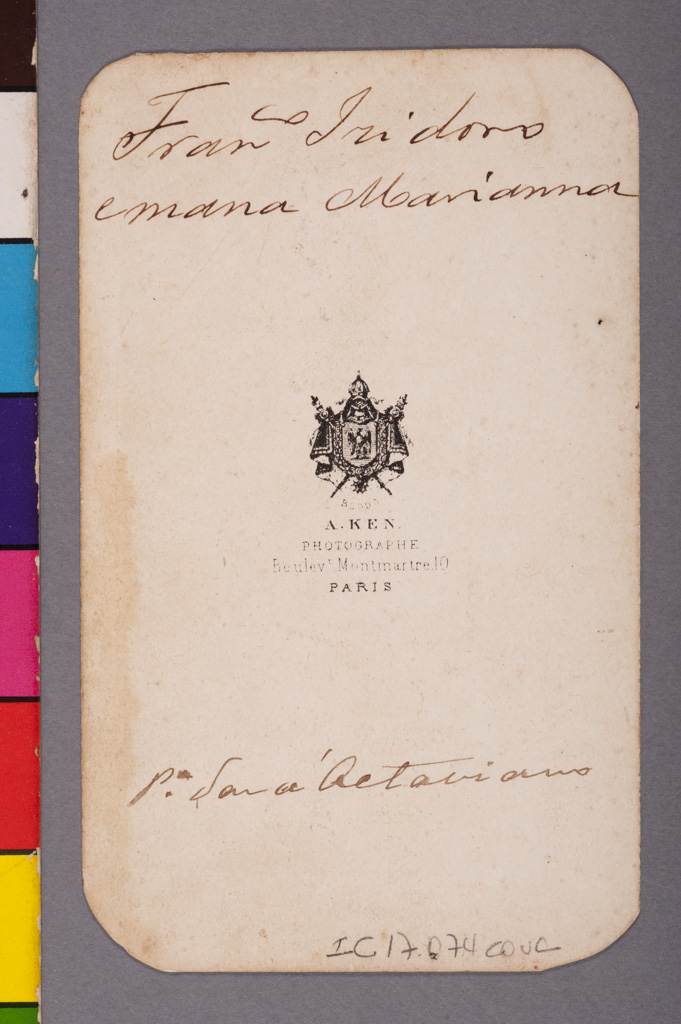 Fran.co Izidoro
e mana Marianna
A. KEN.
PHOTOGRAPHE
Boulevt Montmartre.10
PARIS
Pa Octaviano
IC17.074